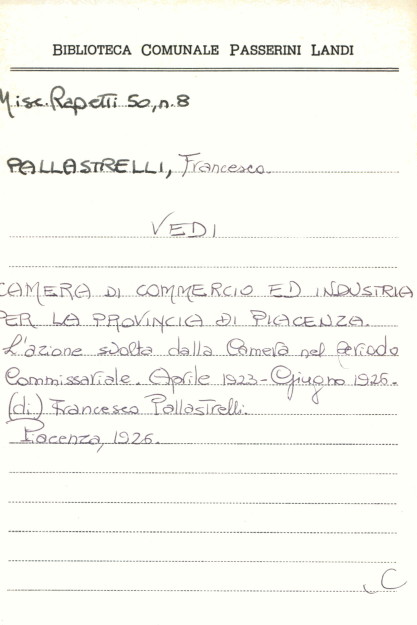 BIBLIOTECA COMUNALE PASSERINI LANDI
Misc. Rapetti 50, n. 8
PALLASTRELLI, Francesco.
VEDI
CAMERA DI COMMERCIO ED INDUSTRIA
PER LA PROVINCIA DI PIACENZA.
L'azione svolta dalla Camera nel periodo
Commissariale. Aprile 1923-Giugno 1925.
(di) Francesco Pallastrelli.
Piacenza, 1926.
C